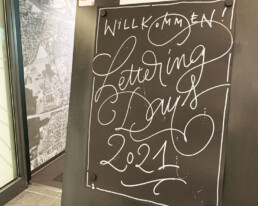 WILLKOMMEN!
Lettering
Days
2021